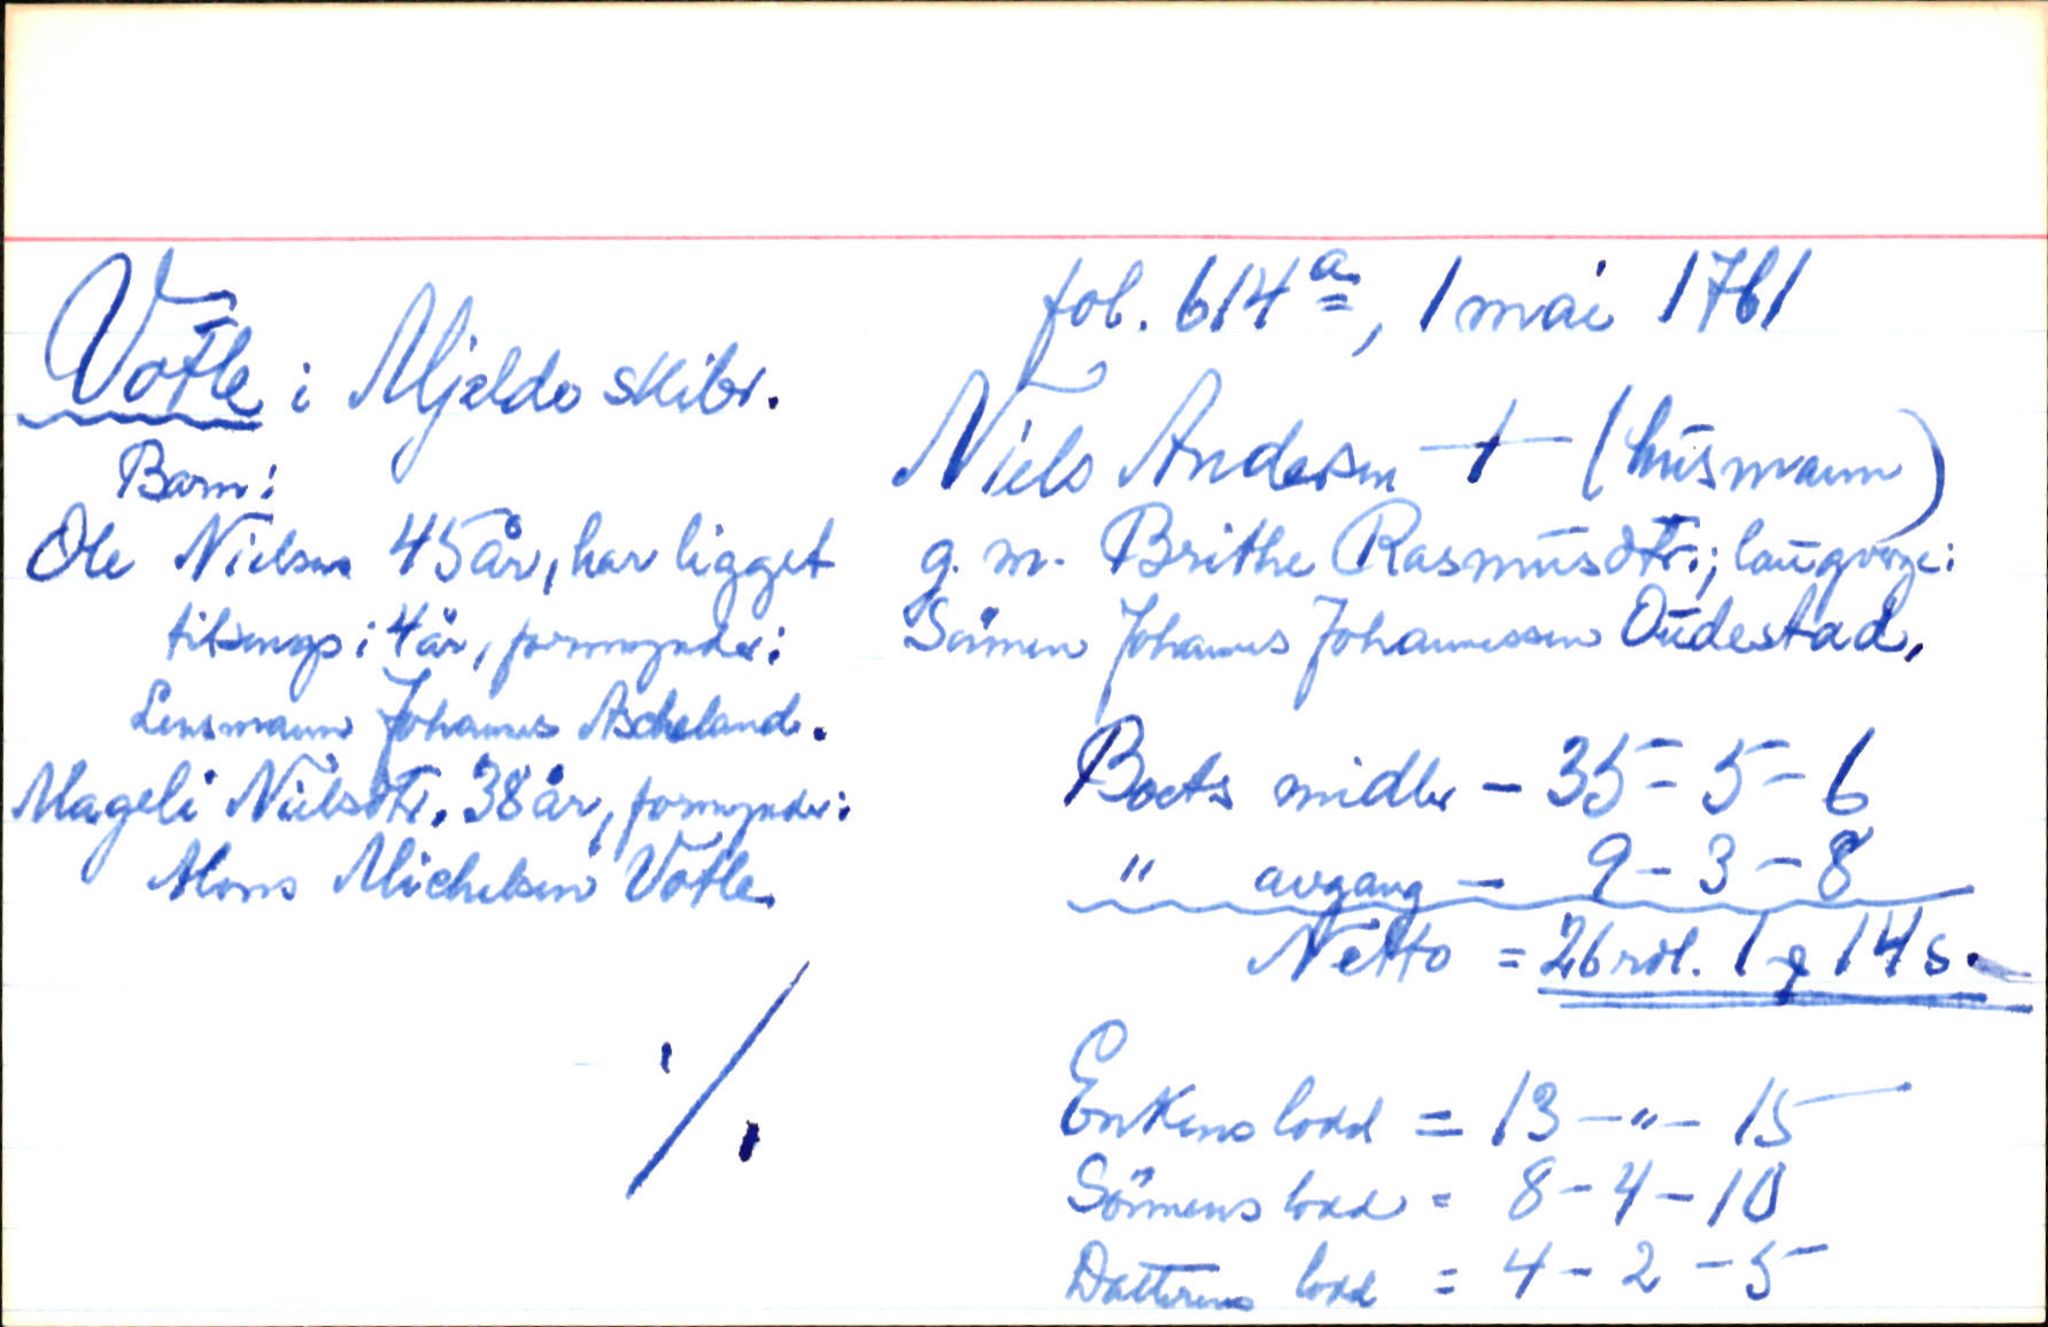 Votle i Mjelde skibr.
Barn:
Ole Nielsen 45 år, har ligget
tilsengs i 4 år, formynder:
Lensmann Johannes Ascheland.
Mageli Nielsdtr. 38 år, formynder:
Mons Michelsen Votle.
·/.
fol. 614 a, 1 mai 1761
Niels Andersen † (husmann)
g. m. Brithe Rasmusdtr.; laugverge:
Sönnen Johannes Johannessen Oudestad.
Boets midler - 35 - 5 - 6
" avgang - 9 - 3 - 8
Netto = 26 rdl. 1 ƍ 14 s.
Enkens lodd = 13 - " - 15
Sönnens lodd = 8 - 4 - 10
Datterens lodd = 4 - 2 - 5